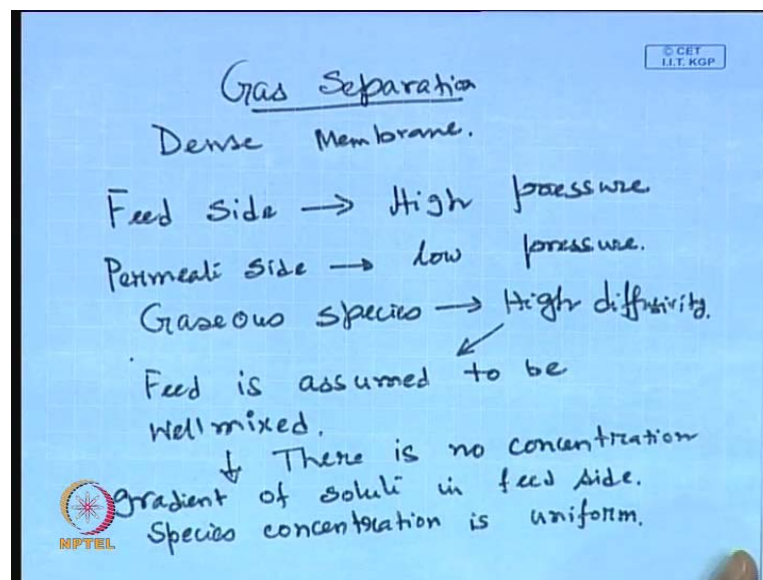 © CET
I.I.T. KGP
Gas Separation
Dense Membrane.
Feed Side → High pressure
Permeate Side → low pressure.
Gaseous species → High diffusivity.
Feed is assumed to be
Well mixed.
↓ There is no concentration
gradient of solute in feed side.
Species concentration is uniform.
NPTEL